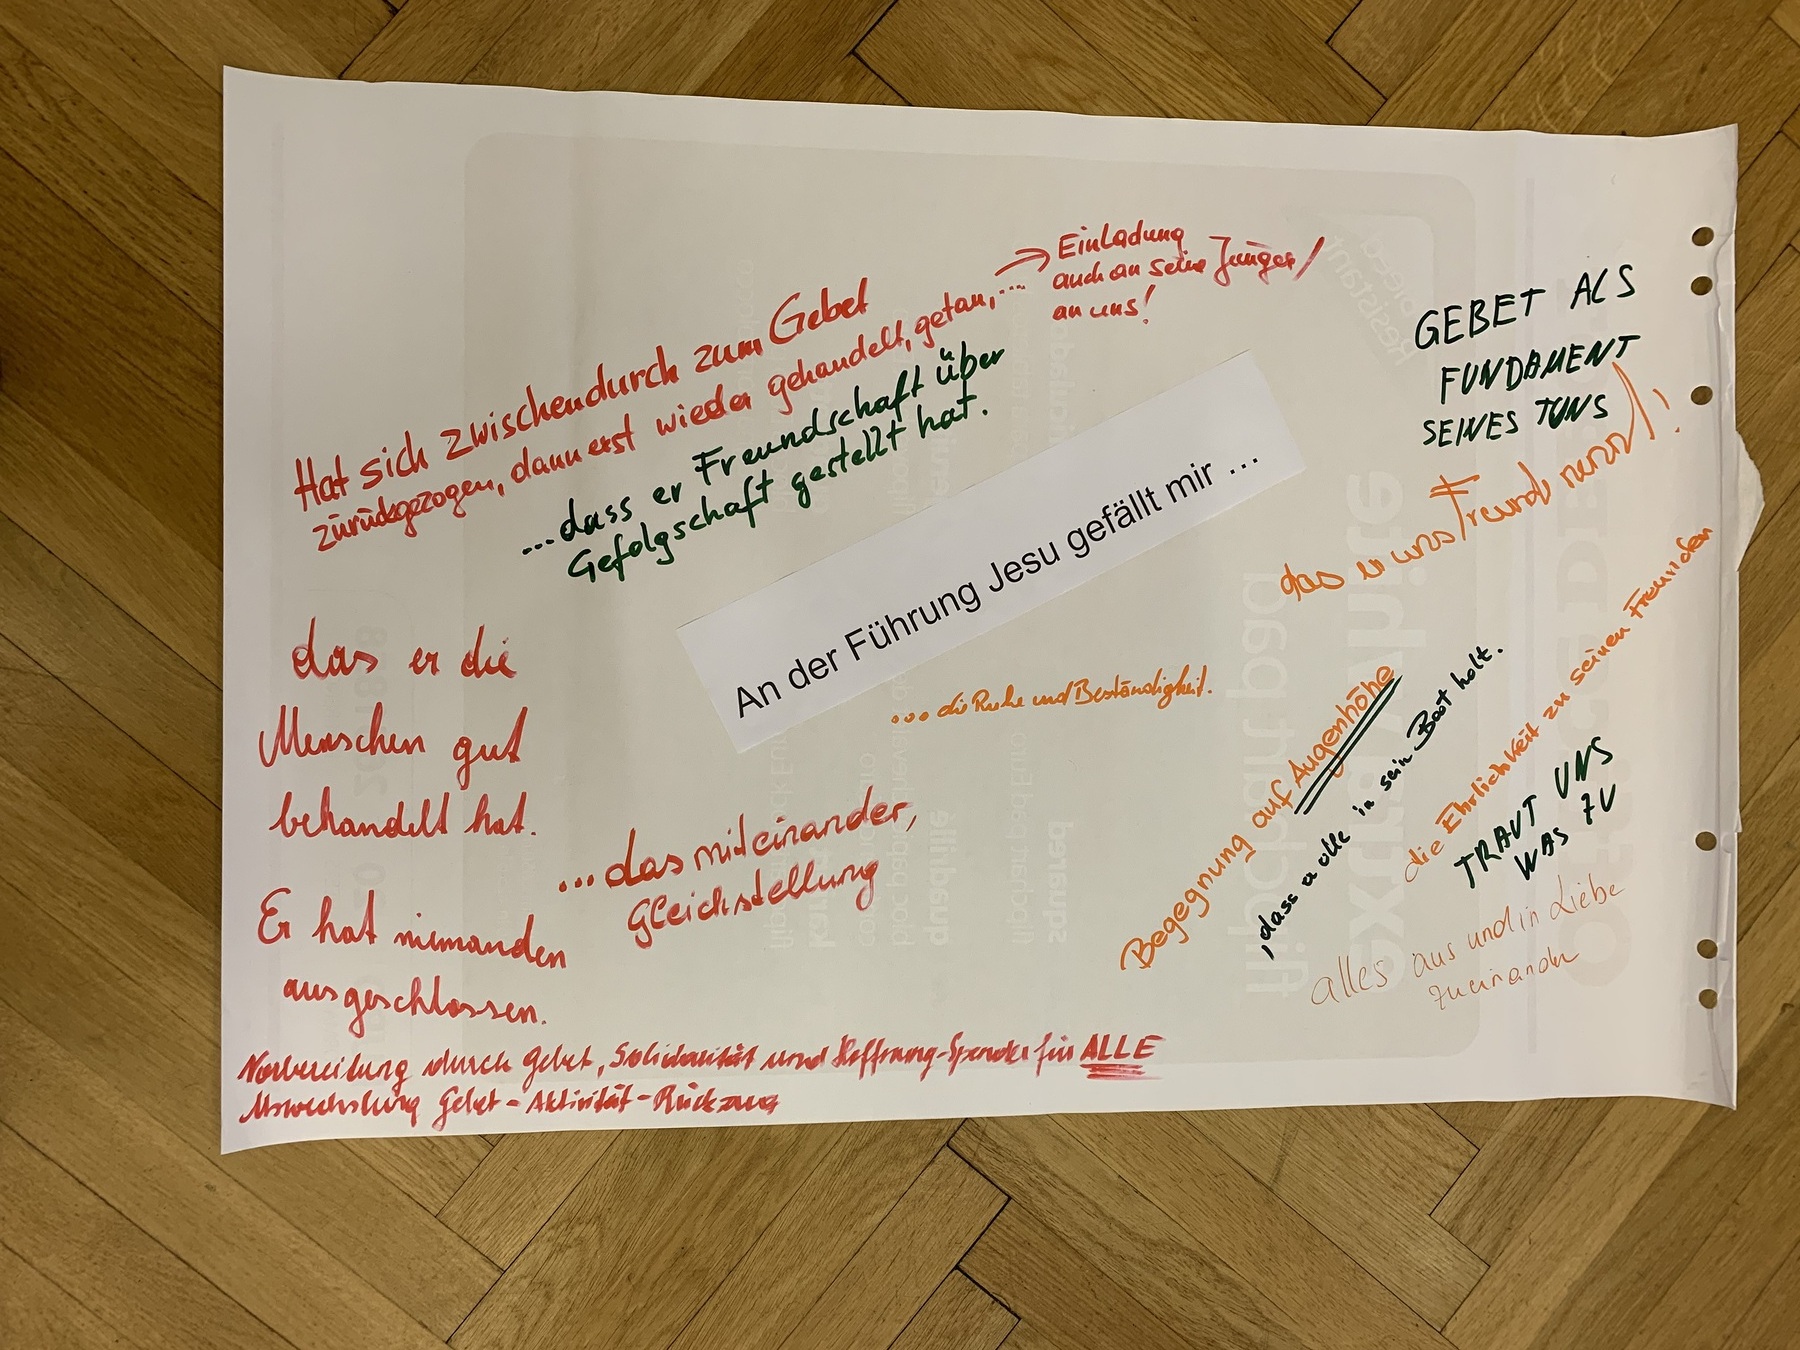 Hat sich zwischendurch zum Gebet
zurückgezogen, dann erst wieder gehandelt, getan,...
→ Einladung
auch an seine Jünger/
an uns!
...dass er Freundschaft über
Gefolgschaft gestellt hat.
An der Führung Jesu gefällt mir ...
GEBET ALS
FUNDAMENT
SEINES TUNS
das er uns Freunde nennt!
das er die
Menschen gut
behandelt hat.
... die Ruhe und Beständigkeit.
...das miteinander,
Gleichstellung
Er hat niemanden
ausgeschlossen.
Begegnung auf Augenhöhe
, dass er alle in sein Boot holt.
die Ehrlichkeit zu seinen Freunden
TRAUT UNS
WAS ZU
alles aus und in Liebe
zueinander
Vorbereitung durch Gebet, Solidarität und Hoffnung-Spender für ALLE
Abwechslung Gebet - Aktivität - Rückzug